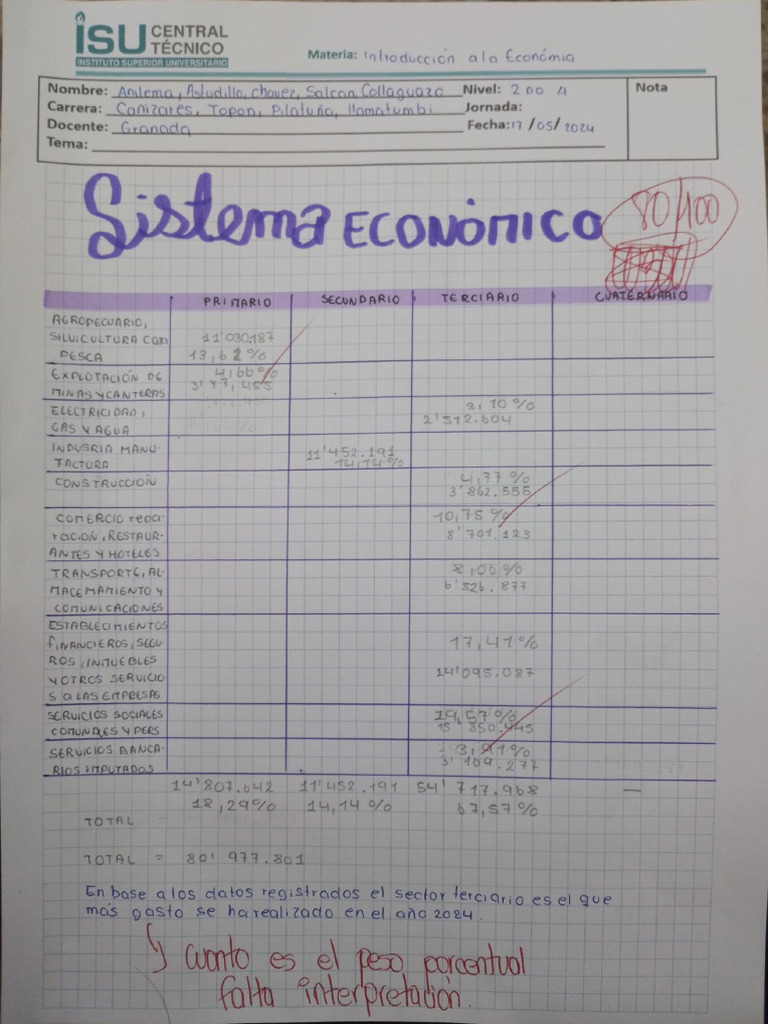 ISU CENTRAL TÉCNICO
INSTITUTO SUPERIOR UNIVERSITARIO
Materia: Introducción a la Económia
Nombre: Anilema, Astudillo, chavez, Salcan, Collaguazo Nivel: 200 4 Nota
Carrera: Cañizares, Topon, Pilatuña, llamatumbi Jornada:
Docente: Granada Fecha: 17/05/2024
Tema:
Sistema ECONÓMICO 80/100
PRIMARIO SECUNDARIO TERCIARIO CUATERNARIO
AGROPECUARIO,
SILVICULTURA CAM 11'030.187
PESCA 13,62%
EXPLOTACIÓN DE 4,66%
MINAS Y CANTERAS
ELECTRICIDAD, 3,10%
GAS Y AGUA 2'512.604
INDUSRIA MANU- 11'452.191
FACTURA 14,14%
CONSTRUCCIÓN 4,77%
3'862.555
COMERCIO repa- 10,75%
racion, RESTAUR- 8'701.123
ANTES Y HOTELES
TRANSPORTE, AL- 8,06%
MACEMAMIENTO Y 6'526.877
COMUNICACIONES
ESTABLECIMIENTOS
FINANCIEROS, SEGU 17,41%
ROS, INMUEBLES
Y OTROS SERVICIO 14'095.087
S A LAS EMPRESAS
SERVICIOS SOCIALES 19,57%
COMUNALES Y PERS 15'850.445
SERVICIOS BANCA- 3,91%
RIOS IMPUTADOS 3'169.277
14'807.642 11'452.191 54'717.968 —
18,29% 14,14% 67,57%
TOTAL
TOTAL = 80'977.801
En base a los datos registrados el sector terciario es el que
más gasto se ha realizado en el año 2024.
cuanto es el peso porcentual
falta interpretación.